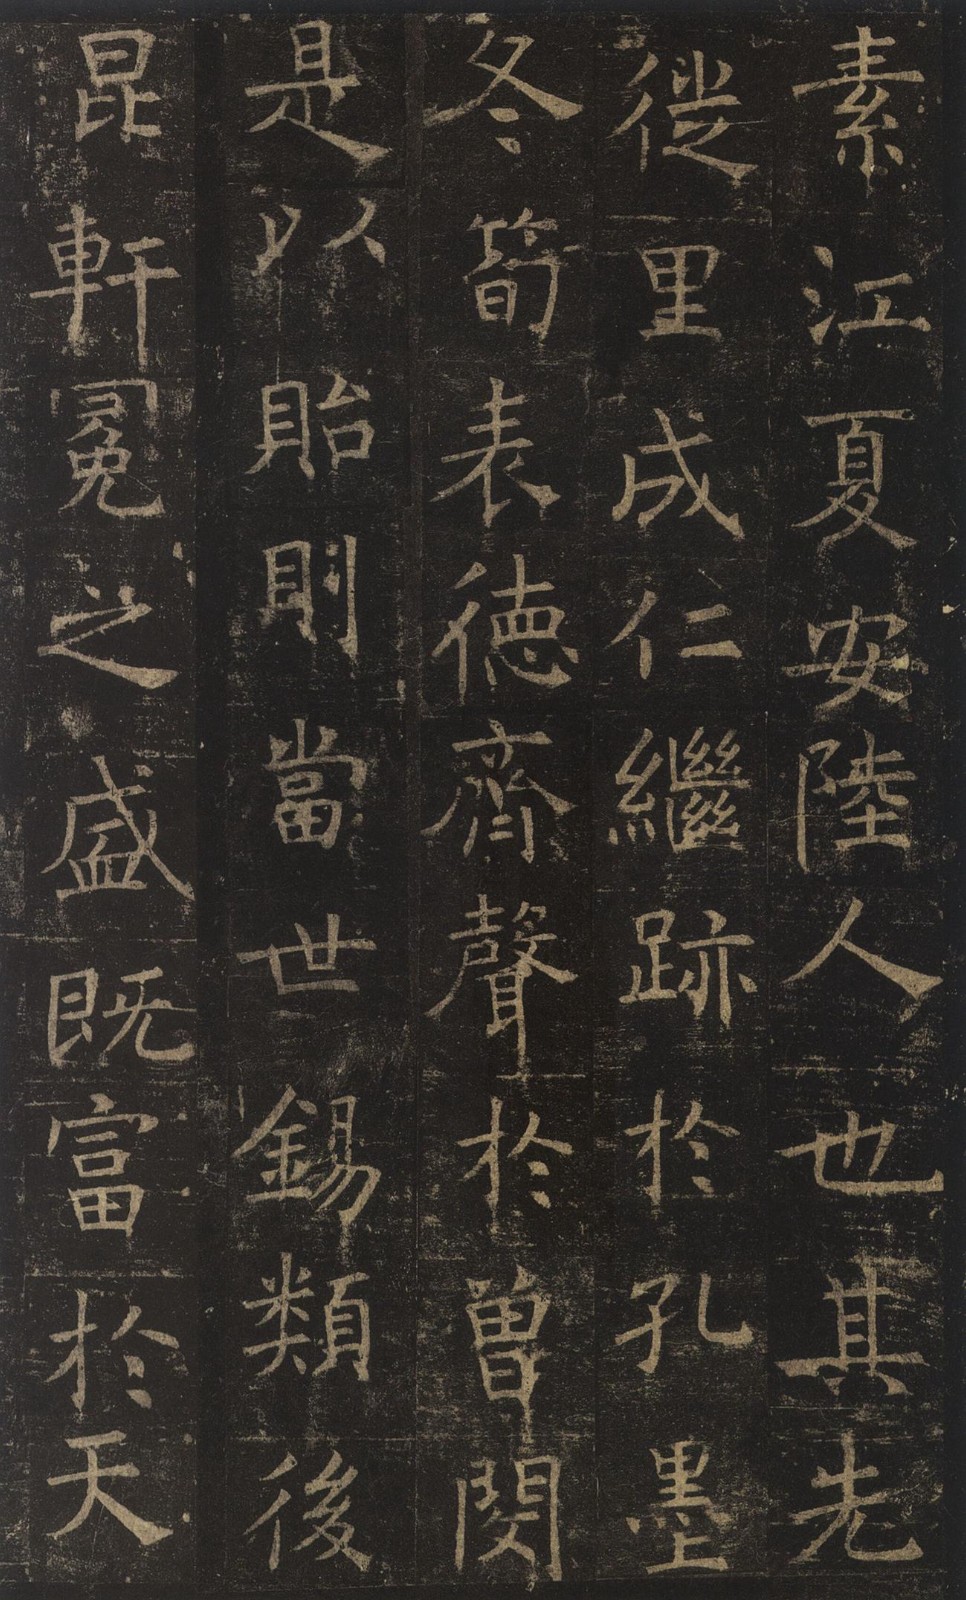 素江夏安陸人也其先
徙里成仁継跡於孔墨
冬筍表德齊聲於曽閔
是以貽則當世錫類後
昆軒冕之盛既富於天